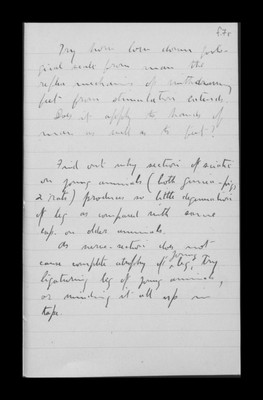 Try how low down zoolo-
gical scale from man the
reflex mechanism of withdrawing
feet from stimulation extends.
Does it apply to hands of
man as well as to feet?
Find out why section of sciatic
on young animals (both guinea-pigs
& rats) produces so little degeneration
of leg as compared with same
exp. on older animals.
As nerve-section does not
cause complete atrophy of young leg, try
ligaturing leg of young animals,
or winding it all up in
tape.